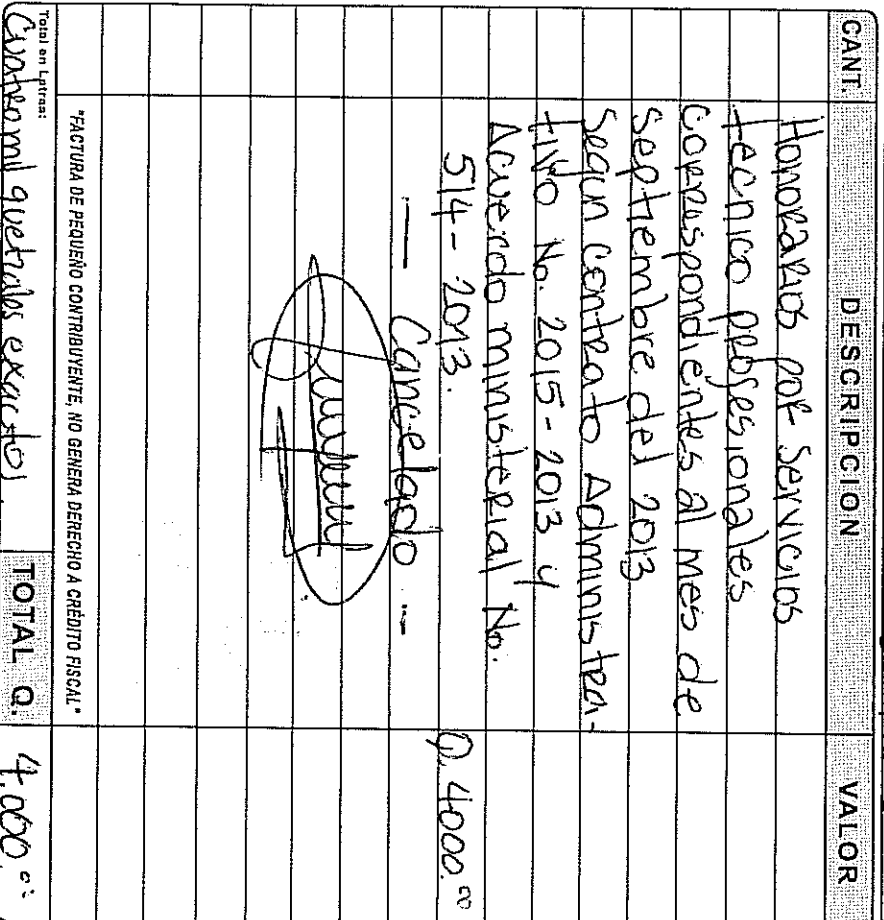 CANT. DESCRIPCION VALOR
Honorarios por Servicios
tecnico profesionales
Correspondientes al mes de
Septiembre del 2013
Segun Contrato Administra-
tivo No. 2015-2013 y
Acuerdo ministerial No.
514-2013. Q. 4000.00
— Cancelado —
"FACTURA DE PEQUEÑO CONTRIBUYENTE, NO GENERA DERECHO A CRÉDITO FISCAL"
Total en Letras:
Cuatro mil quetzales exactos. TOTAL Q. 4,000.00